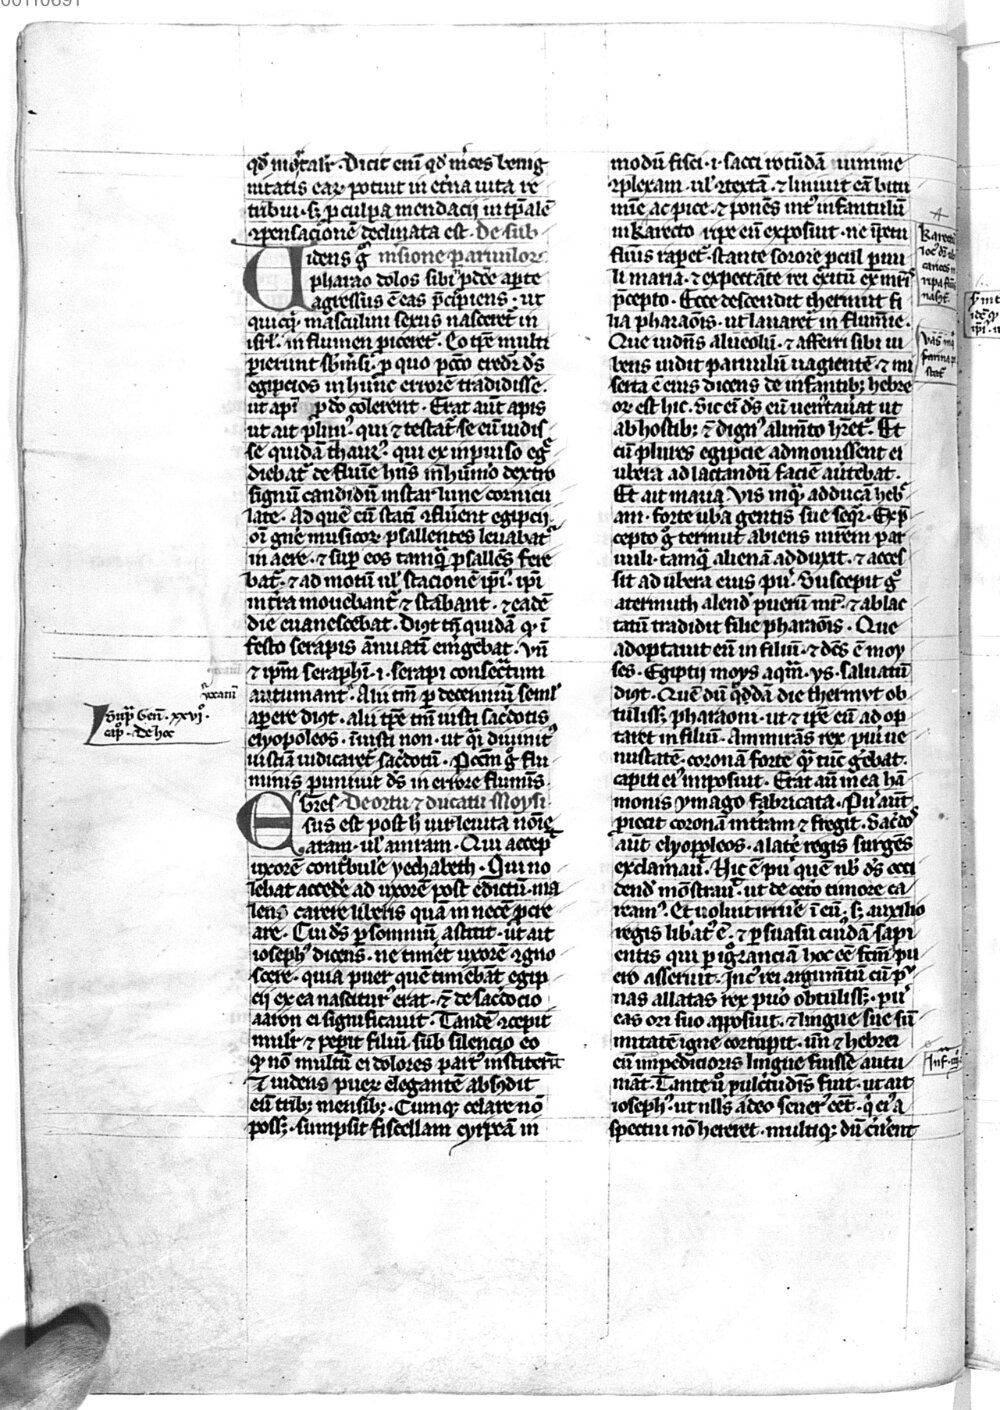 00110691
qđ mõtalr̃ · Dicit eni qđ m̃ces benig
nitatis eaꝝ potiut in etña uita re
tribui · sꝫ ꝑ culpa mendacii in tp̃alẽ
ꝯpensacionẽ declinata est · de sub
Uidens gͦ misione paruuloꝝ
pharao dolos sibi ꝓdeẽ aperte
agressus ẽ eas p̃cipiens · ut
quicqͥ masculini sexus nasceret̃ in
isrl̃ · in flumen ꝓiceret̃ · Eo tp̃e multi
ꝑierunt sbm̃si · ꝑ quo pctõ credit̃ dš
egipcios in hunc errorẽ tradidisse ·
ut apĩ ꝓ dõ colerent · Erat aũt apis
ut ait plini⁹ · qui ⁊ testat̃ se eũ uidis
se quidã thaur⁹ · qui ex inpuiso eg̃
diebat̃ de fluĩe hñs in hũmo dextro
signũ candidũ instar lune cornicu
late · Ad quẽ cũ stati ꝯfluẽnt egipcii
oĩ gñe musicoꝝ psallentes leuabat̃
in aere · ⁊ suꝑ eos tamqͣ psallẽs fere
bat̃ · ⁊ ad motũ ul̃ stacionẽ ip̃i⁹ · ip̃i
in tr̃a mouebant̃ ⁊ stabant · ⁊ eadẽ
die euanescebat · Dñt tñ quidã qͥ ĩ
festo serapis ãnuati em̃gebat · Vñ
⁊ ip̃m seraphĩ · i · serapi consecͣtum
autumant · Alii tm̃ ꝑ decennium semł
apere dñt · alii tp̃e tm̃ iusti sac̃dotis
elyopoleos · iniusti non · ut qͣi diuinit⁹
iusticiã iudicaret sac̃dotũ · Pccm̃ gͦ flu
minis puniuit dš in errore fluminis ·
Egres De ortu ⁊ ducatu Moysi
sus est post h̃ uir leuita noĩe
aram · ul̃ amram · Qui accep̃
uxorẽ contribulẽ yechabeth · Qui no
lebat accede̾ ad uxorẽ post edictũ · ma
lens carere liberis quã in necẽ ꝓcre
are · Cui dš ꝑ sompniũ astitit · ut ait
ioseph⁹ dicens · ne timẽt uxorẽ ꝯgno
scere · quia puer quẽ timebãt egip
cii ex ea nascitur⁹ erat · ⁊ de sac̃docio
aaron ei significauit · Tandẽ ꝯcepit
mulr̃ ⁊ peꝑit filiũ sub silencio eo
qͥ nõ multũ ei dolores part⁹ institerũt
⁊ uidens puerũ elegantẽ abscõdit
eũ tribꝫ mensibꝫ · Cumqꝫ celare nõ
possꝫ · sumpsit fiscellam cyrpeã in
modũ fisci · i · sacci rotũdã uimine
ꝯplexam · ul̃ ꝯtextã · ⁊ liniuit eã bitu
mĩe ac pice · ⁊ ponẽs int̾ infantulũ
in karecto ripe eũ exposuit · ne ip̃etu
fluiis raꝑet̃ · stante sorore pcul pueri
li maria · ⁊ expectãte rei exitũ ex mr̃i
p̃cepto · Ecce descendit thermut fi
lia pharaõis · ut lauaret̃ in flumĩe ·
Que uidẽs alueolũ · ⁊ afferri sibi iu
bens uidit paruulũ uagientẽ · ⁊ mi
serta ẽ eius dicens de infantibꝫ hebre
oꝝ est hic · Sic eni dš eũ uen̾tauat ut
ab hostibꝫ · ⁊ dign⁹ alim̃to hr̃et̃ · Et
cũ plures egipcie admouissent ei
ubera ad lactandũ faciẽ aũtebat ·
Et ait maria · Vis inqͥ adducã heb̃
am · forte ub̾a gentis sue seqr̃ · Exp̃
cepto gͦ termut abiens mr̃em par
uuli · tamqͣ alienã adduxit · ⁊ acces
sit ad ubera eius pu̾ · Suscepit gͦ
atermuth alendũ puerũ mr̃ · ⁊ ablac
tatũ tradidit filie pharaõis · Que
adoptauit eũ in filiũ · ⁊ dcũs ẽ moy
ses · Egiptii moys aqͣm · ys · saluatũ
dñt · Quẽ dũ qͣdã die thermut ob
tulissꝫ pharaoni · ut ⁊ ip̃e eũ adop
taret in filiũ · Ammirãs rex pueri ue
nustatẽ · coronã forte qͣ tũc g̃ebat ·
capiti ei⁹ imposuit · Erat aũt in ea hã
monis ymago fabricata · Pu̾ aũt
ꝓiecit coronã in tr̃am ⁊ fregit · Sac̃dos
aũt elyopoleos · a late̾ regis surgẽs
exclamauit · Hic ẽ pu̾ quẽ nob̃ dš occi
dendũ mõstrauit · ut de cet̾o timore ca
ream⁹ · Et uoluit irrue̾ ĩ eũ · sꝫ auxilio
regis lib̾at⁹ ẽ · ⁊ ꝑ suasũ cui⁹dã sapi
entis qui ꝑ ignoranciã hoc eẽ fcm̃ pu
ero asseruit · Inc̾ rei argumtũ cũ pru
nas allatas rex pu̾o obtulissꝫ · pu̾
eas ori suo apposuit · ⁊ lingue sue sũ
mitate̾ igne corrupit · uñ ⁊ hebrei
eũ impeditioris lingue fuisse autu
mãt · Tante u̾o pulc̾tudinis fuit · ut ait
ioseph⁹ · ut nlls adeo seuer⁹ eẽt · qͥ ei⁹ a
spectui nõ hereret · multiqꝫ dũ c̾neñt
uocatiũ
Supͣ Geñ · xxvj ·
cap̃ · de hoc
Karectũ
Inf̾ · iij